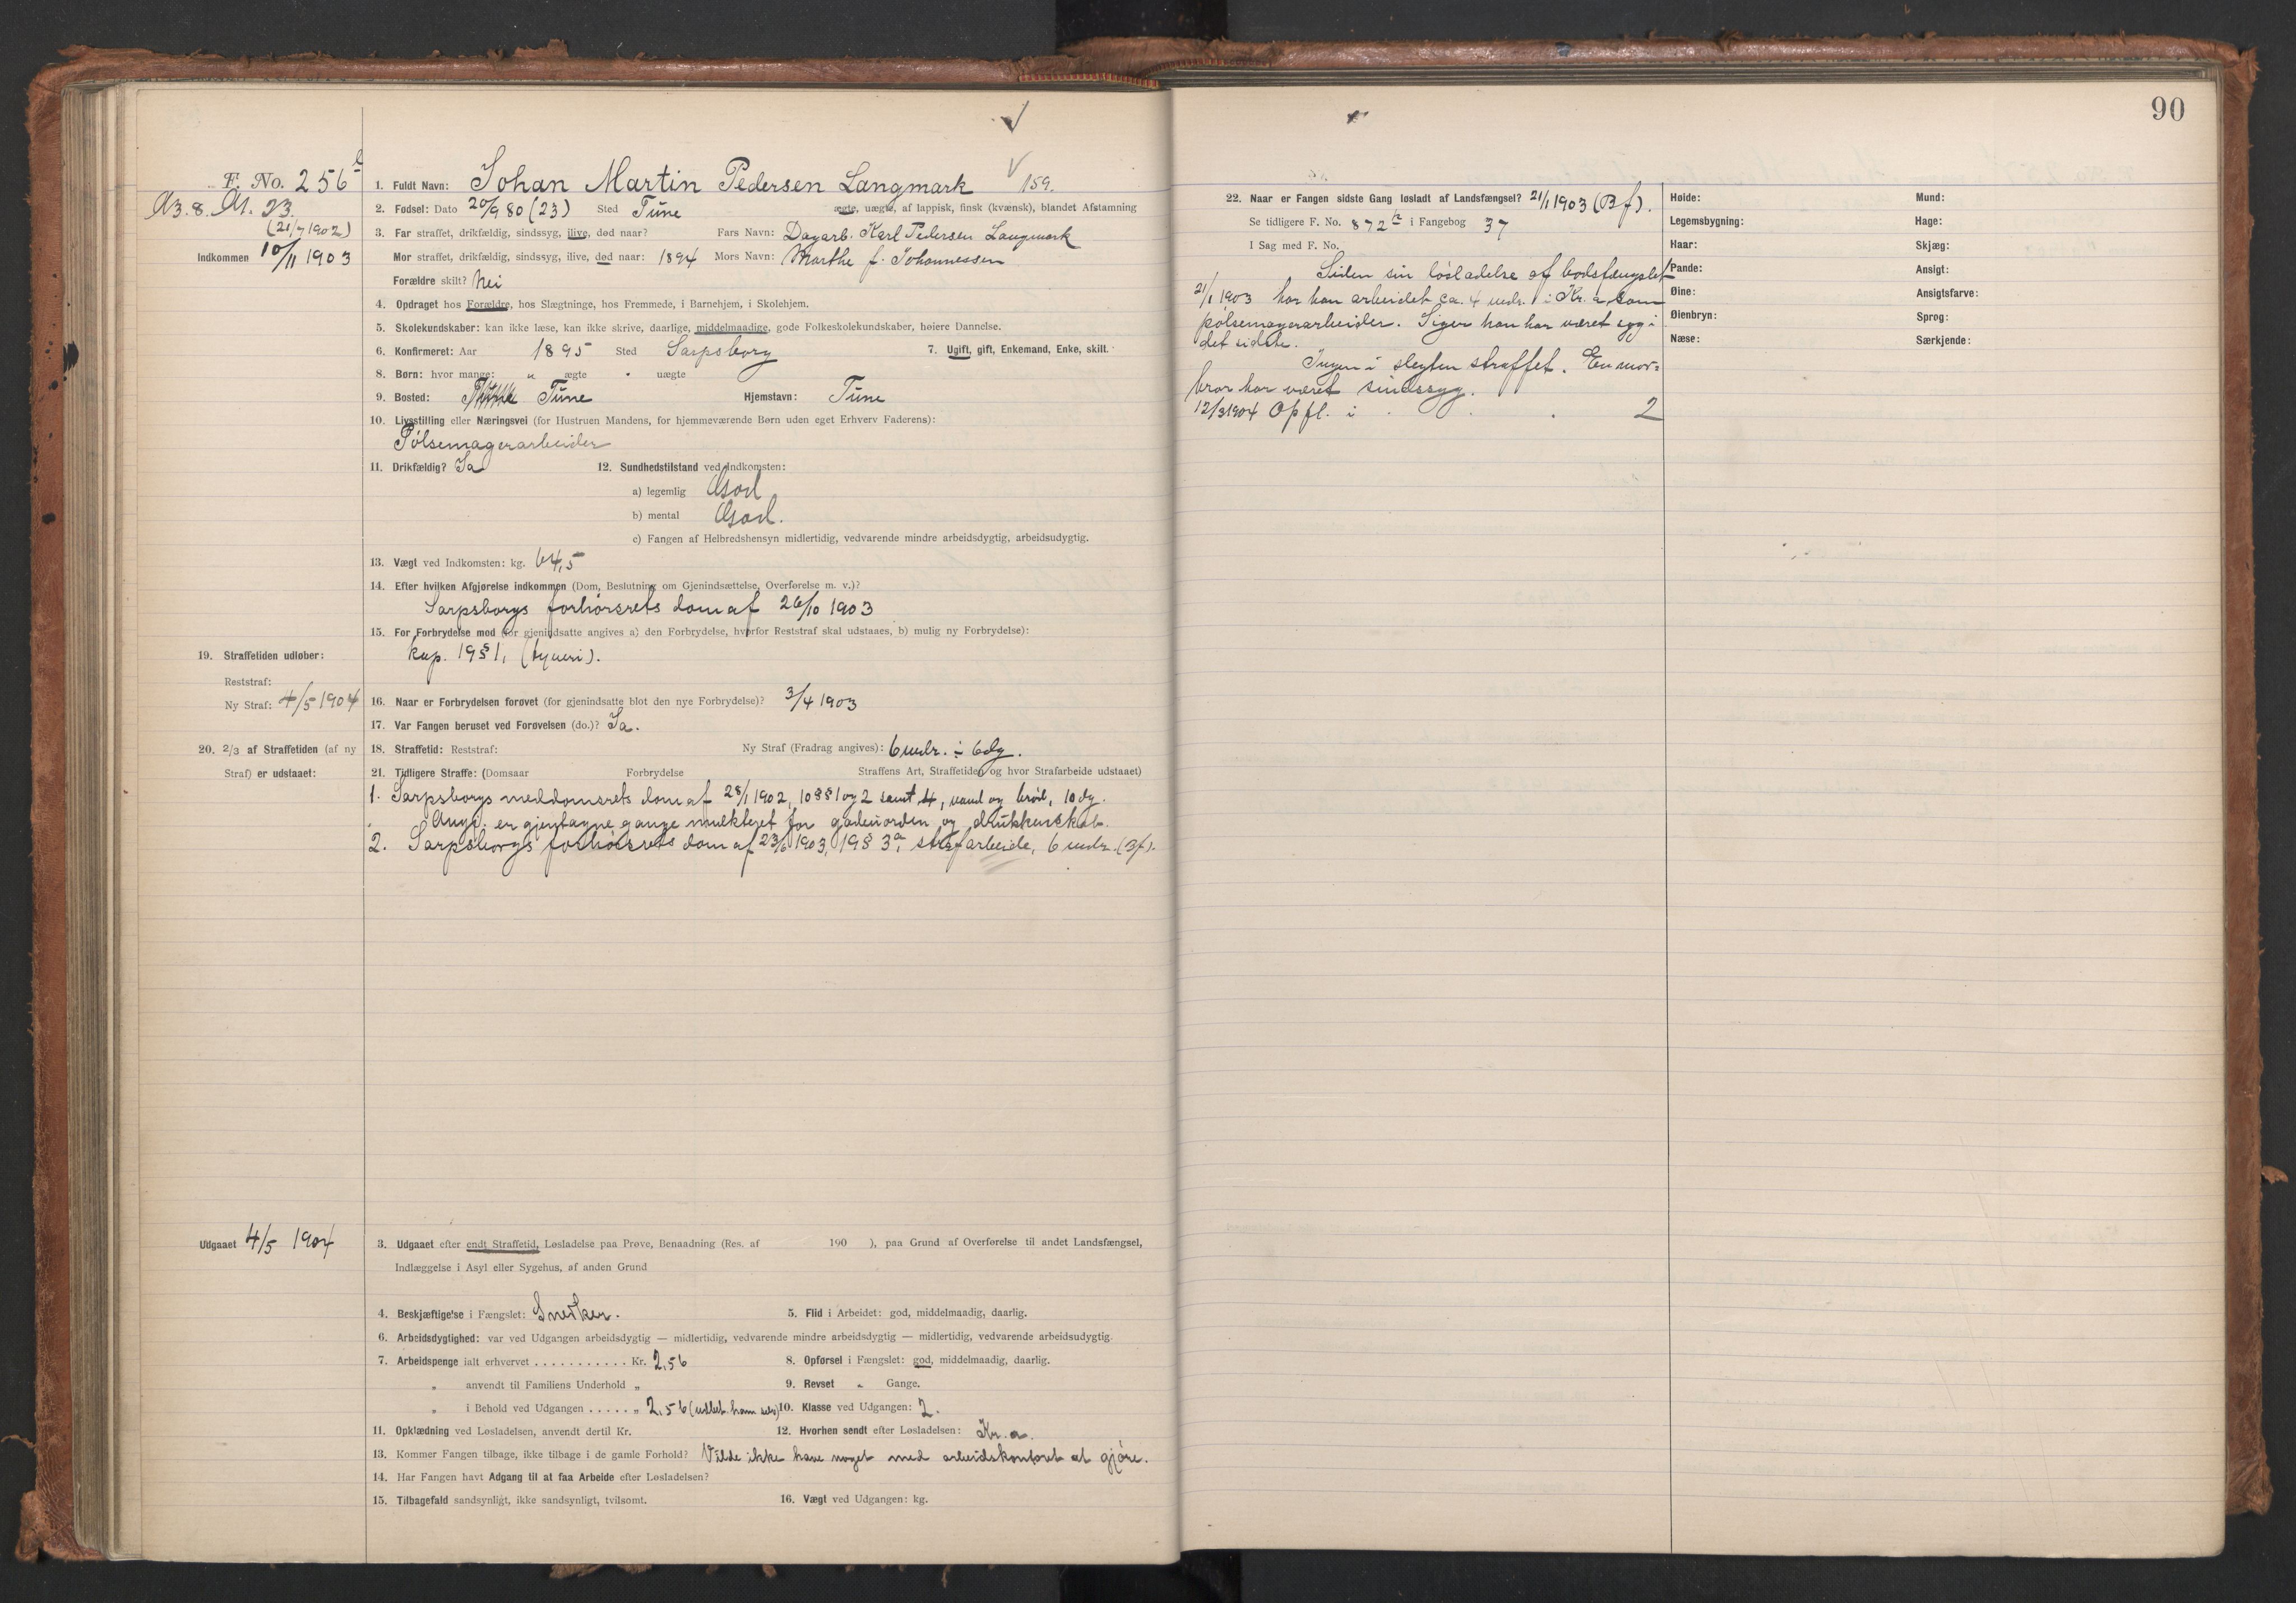 F. No. 256 b
A3. 8. A1. 23.
(21/7 1902)
Indkommen 10/11 1903
1. Fuldt Navn: Johan Martin Pedersen Langmark 159.
2. Fødsel: Dato 20/9 80 (23) Sted Tune ægte, uægte, af lappisk, finsk (kvænsk), blandet Afstamning
3. Far straffet, drikfældig, sindssyg, ilive, død naar? Fars Navn: Dagarb. Karl Pedersen Langmark
Mor straffet, drikfældig, sindssyg, ilive, død naar: 1894 Mors Navn: Marthe f. Johannessen
Forældre skilt? Nei
4. Opdraget hos Forældre, hos Slægtninge, hos Fremmede, i Barnehjem, i Skolehjem.
5. Skolekundskaber: kan ikke læse, kan ikke skrive, daarlige, middelmaadige, gode Folkeskolekundskaber, høiere Dannelse.
6. Konfirmeret: Aar 1895 Sted Sarpsborg 7. Ugift, gift, Enkemand, Enke, skilt.
8. Børn: hvor mange: " ægte " uægte
9. Bosted: Tune Hjemstavn: Tune
10. Livsstilling eller Næringsvei (for Hustruen Mandens, for hjemmeværende Børn uden eget Erhverv Faderens):
Pølsemagerarbeider
11. Drikfældig? Ja 12. Sundhedstilstand ved Indkomsten:
a) legemlig God
b) mental God.
c) Fangen af Helbredshensyn midlertidig, vedvarende mindre arbeidsdygtig, arbeidsudygtig.
13. Vægt ved Indkomsten: kg. 64,5
14. Efter hvilken Afgjørelse indkommen (Dom, Beslutning om Gjenindsættelse, Overførelse m. v.)?
Sarpsborgs forhørsrets dom af 26/10 1903
15. For Forbrydelse mod (for gjenindsatte angives a) den Forbrydelse, hvorfor Reststraf skal udstaaes, b) mulig ny Forbrydelse):
kap. 19 § 1, (tyveri).
19. Straffetiden udløber:
Reststraf:
Ny Straf: 4/5 1904
16. Naar er Forbrydelsen forøvet (for gjenindsatte blot den nye Forbrydelse)? 3/4 1903
17. Var Fangen beruset ved Forøvelsen (do.)? Ja.
20. 2/3 af Straffetiden (af ny
Straf) er udstaaet:
18. Straffetid: Reststraf: Ny Straf (Fradrag angives): 6 mdr. ÷ 6 dg.
21. Tidligere Straffe: (Domsaar Forbrydelse Straffens Art, Straffetiden og hvor Strafarbeide udstaaet)
1. Sarpsborgs meddomsrets dom af 28/1 1902, 10 §§ 1 og 2 samt 4, vand og brød, 10 dg.
Angj. er gjentagne gange mulkteret for gadeuorden og drukkenskab.
2. Sarpsborgs forhørsrets dom af 23/6 1903, 19 § 3 a, strafarbeide, 6 mdr. (Bf).
Udgaaet 4/5 1904
3. Udgaaet efter endt Straffetid, Løsladelse paa Prøve, Benaadning (Res. af 190 ), paa Grund af Overførelse til andet Landsfængsel,
Indlæggelse i Asyl eller Sygehus, af anden Grund
4. Beskjæftigelse i Fængslet: Snedker. 5. Flid i Arbeidet: god, middelmaadig, daarlig.
6. Arbeidsdygtighed: var ved Udgangen arbeidsdygtig — midlertidig, vedvarende mindre arbeidsdygtig — midlertidig, vedvarende arbeidsudygtig.
7. Arbeidspenge ialt erhvervet . . . . . . . . . . . Kr. 2,56 8. Opførsel i Fængslet: god, middelmaadig, daarlig.
" anvendt til Familiens Underhold " 9. Revset " Gange.
" i Behold ved Udgangen . . . . . " 2,56 (udbet. ham selv) 10. Klasse ved Udgangen: 2.
11. Opklædning ved Løsladelsen, anvendt dertil Kr. 12. Hvorhen sendt efter Løsladelsen: Kr.a.
13. Kommer Fangen tilbage, ikke tilbage i de gamle Forhold? Vilde ikke have noget med arbeidskontoret at gjøre.
14. Har Fangen havt Adgang til at faa Arbeide efter Løsladelsen?
15. Tilbagefald sandsynligt, ikke sandsynligt, tvilsomt. 16. Vægt ved Udgangen: kg.
90
22. Naar er Fangen sidste Gang løsladt af Landsfængsel? 21/1 1903 (Bf).
Se tidligere F. No. 872 b i Fangebog 37
I Sag med F. No.
Siden sin løsladelse af bodsfængslet
21/1 1903 har han arbeidet ca. 4 mdr. i Kr.a som
pølsemagerarbeider. Siger han har været syg i
det sidste.
Ingen i slegten straffet. En mor=
bror har været sindssyg.
12/3 1904 Opfl. i 2
Høide: Mund:
Legemsbygning: Hage:
Haar: Skjæg:
Pande: Ansigt:
Øine: Ansigtsfarve:
Øienbryn: Sprog:
Næse: Særkjende: